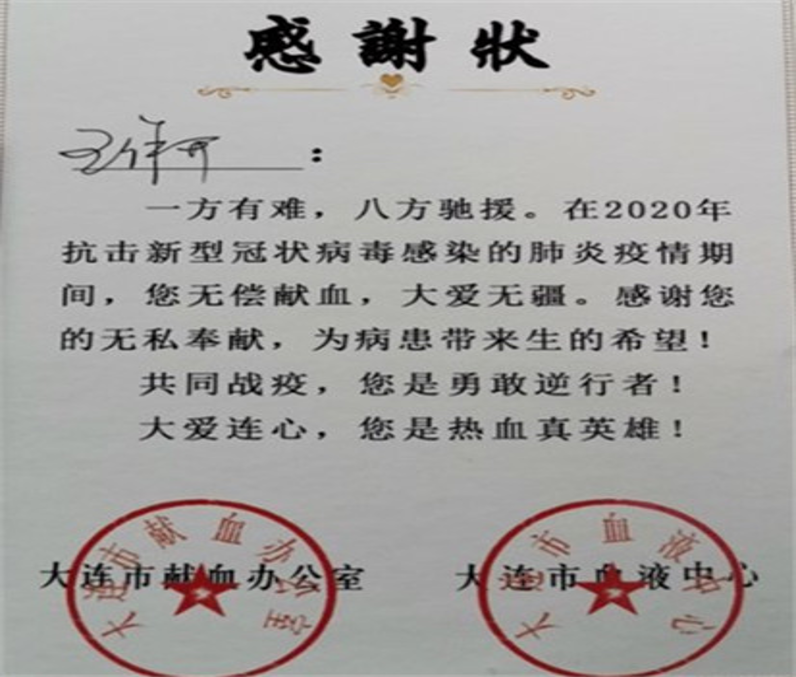 感謝狀
：
一方有难，八方驰援。在2020年
抗击新型冠状病毒感染的肺炎疫情期
间，您无偿献血，大爱无疆。感谢您
的无私奉献，为病患带来生的希望！
共同战疫，您是勇敢逆行者！
大爱连心，您是热血真英雄！
大连市献血办公室
大连市血液中心
大连市献血办公室
大连市血液中心